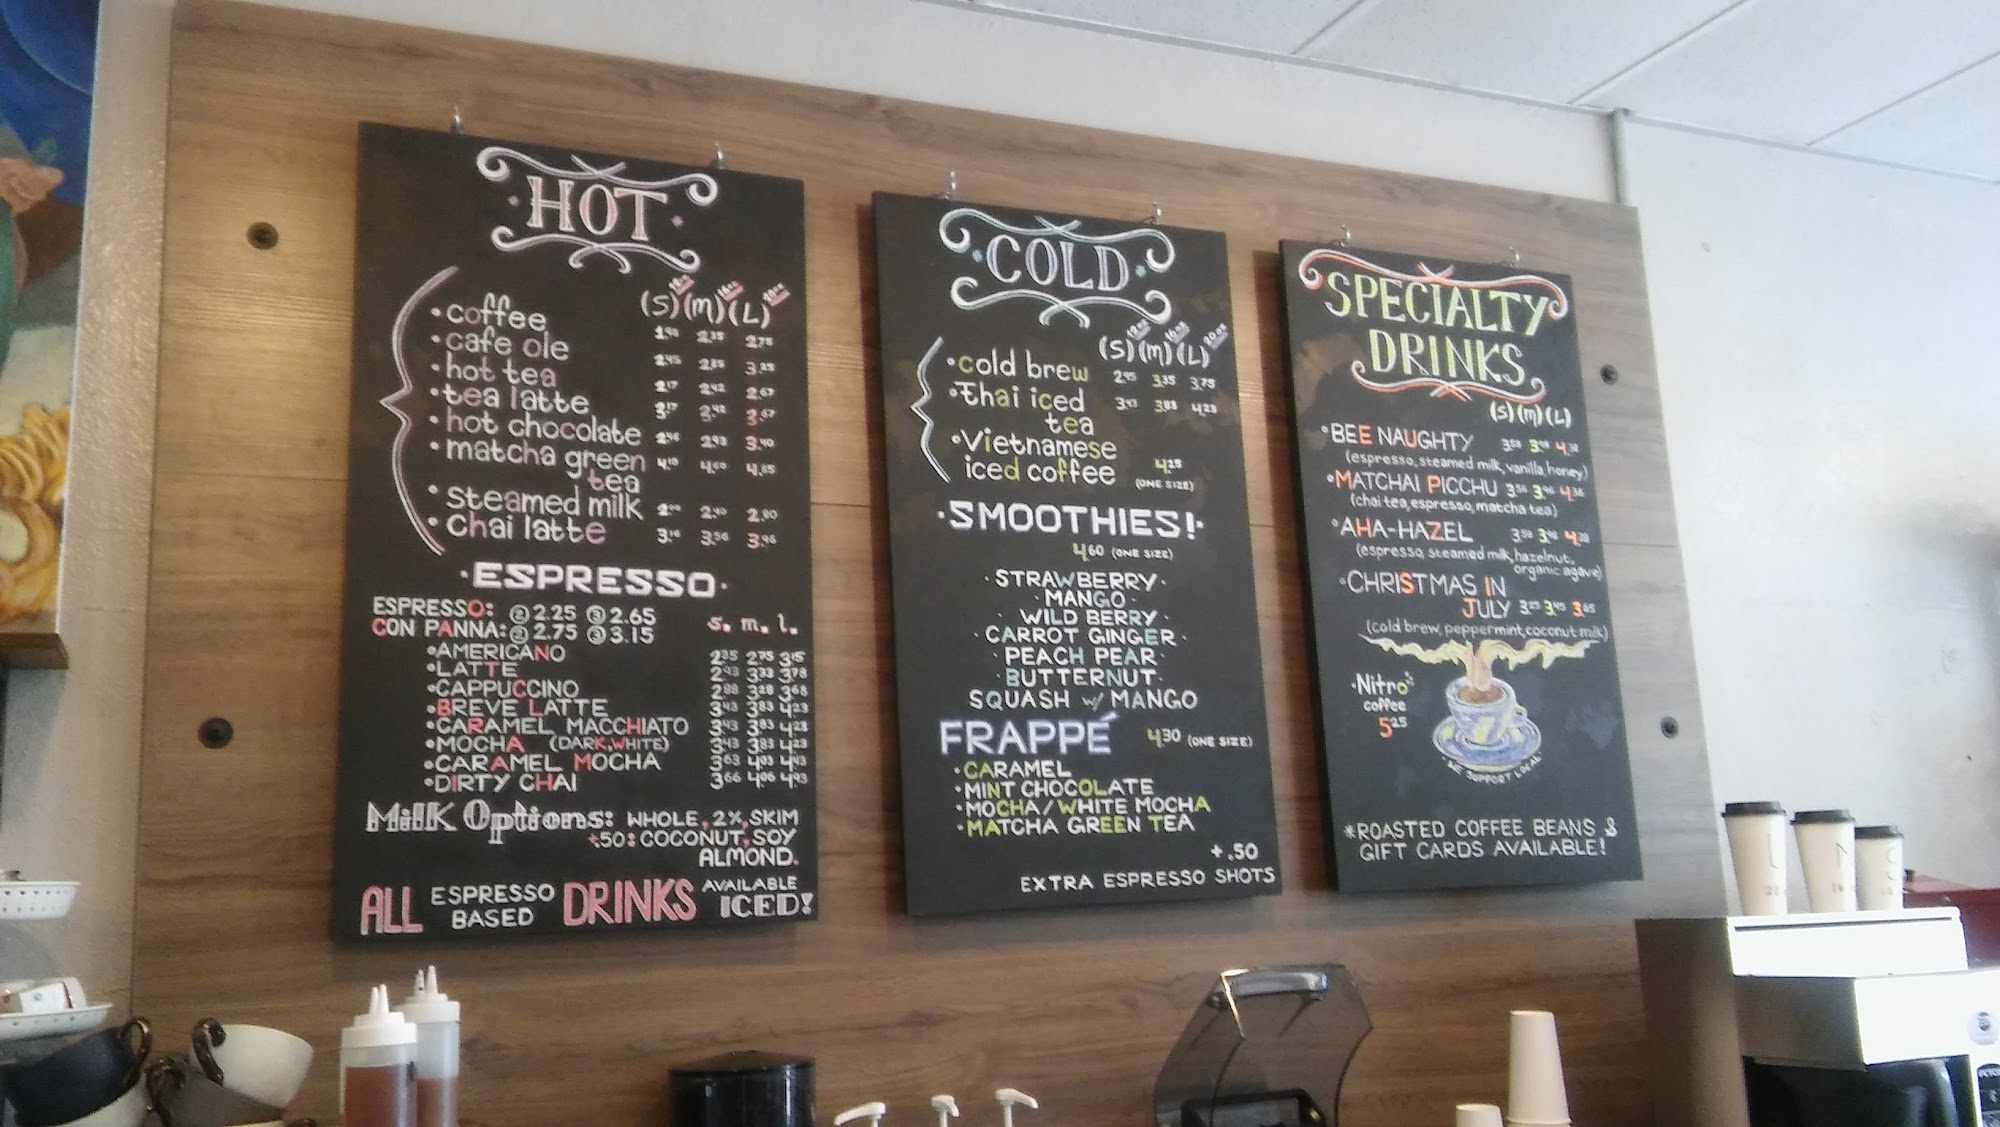 HOT
(S) (M) (L)
• coffee 2.35 2.75
• cafe ole 2.45 2.85 3.25
• hot tea 2.17 2.42 2.67
• tea latte 3.17 3.42 3.67
• hot chocolate 2.93 3.40
• matcha green tea 4.60 4.85
• steamed milk 2.40 2.80
• chai latte 3.16 3.56 3.96
• ESPRESSO •
ESPRESSO: ② 2.25 ③ 2.65
CON PANNA: ② 2.75 ③ 3.15
S. M. L.
• AMERICANO 2.35 2.75 3.15
• LATTE 2.93 3.33 3.78
• CAPPUCCINO 2.88 3.28 3.68
• BREVE LATTE 3.43 3.83 4.23
• CARAMEL MACCHIATO 3.43 3.83 4.23
• MOCHA (DARK, WHITE) 3.43 3.83 4.23
• CARAMEL MOCHA 3.63 4.03 4.43
• DIRTY CHAI 3.66 4.06
Milk Options: WHOLE, 2%, SKIM
+.50: COCONUT, SOY
ALMOND.
ALL ESPRESSO BASED DRINKS AVAILABLE ICED!
COLD
12oz 16oz 20oz
(S) (M) (L)
• cold brew 2.95 3.35 3.75
• Thai iced tea 3.43 3.83 4.23
• Vietnamese
iced coffee 4.25
(ONE SIZE)
• SMOOTHIES! •
4.60 (ONE SIZE)
• STRAWBERRY •
• MANGO •
• WILD BERRY •
• CARROT GINGER •
• PEACH PEAR •
• BUTTERNUT •
SQUASH w/ MANGO
FRAPPÉ 4.30 (ONE SIZE)
• CARAMEL
• MINT CHOCOLATE
• MOCHA/WHITE MOCHA
• MATCHA GREEN TEA
+.50
EXTRA ESPRESSO SHOTS
SPECIALTY
DRINKS
(S) (M) (L)
• BEE NAUGHTY
(espresso, steamed milk, vanilla, honey)
• MATCHAI PICCHU 3.56 3.96 4.36
(chai tea, espresso, matcha tea)
• AHA-HAZEL
(espresso, steamed milk, hazelnut,
organic agave)
• CHRISTMAS IN
JULY 3.25 3.45 3.65
(cold brew, peppermint, coconut milk)
• Nitro
coffee
5.25
• WE SUPPORT LOCAL •
*ROASTED COFFEE BEANS &
GIFT CARDS AVAILABLE!